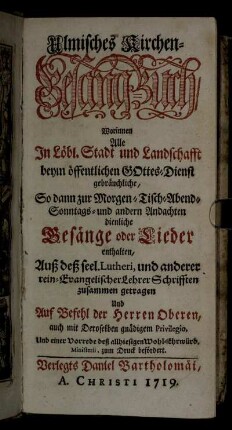 Ulmisches Kirchen-
Gesang-Buch
Worinnen
Alle
In Löbl. Stadt und Landschafft
beym öffentlichen GOttes-Dienst
gebräuchliche,
So dann zur Morgen-Tisch-Abend-
Sonntags- und andern Andachten
dienliche
Gesänge oder Lieder
enthalten,
Auß deß seel. Lutheri, und anderer
rein-Evangelischer Lehrer Schrifften
zusammen getragen
Und
Auf Befehl der Herren Oberen,
auch mit Deroselben gnädigem Privilegio,
Und einer Vorrede deß allhiesigen Wohl-Ehrwürd.
Ministerii, zum Druck befördert.
Verlegts Daniel Bartholomäi,
A. CHRISTI 1719.